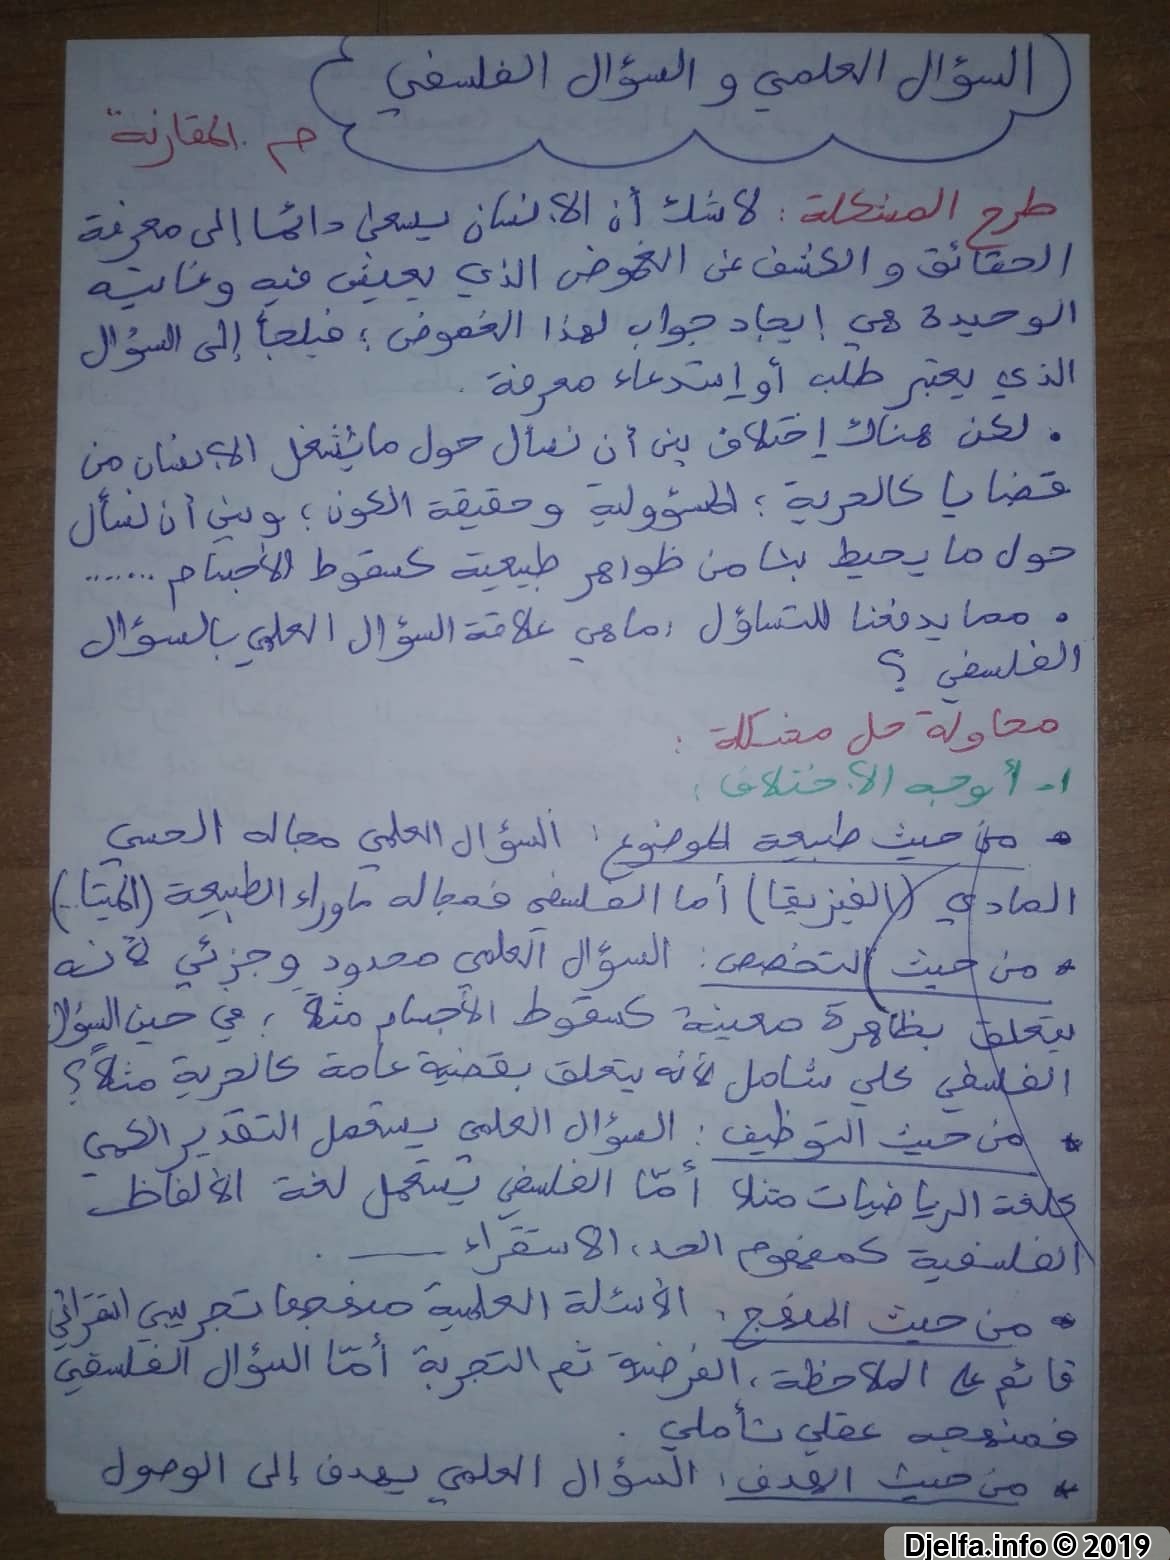 السؤال العلمي و السؤال الفلسفي
م. المقارنة
طرح المشكلة : لا شك أن الإنسان يسعى دائما إلى معرفة
الحقائق و الكشف عن الغموض الذي يعيش فيه وغايته
الوحيدة هي إيجاد جواب لهذا الغموض ؛ فيلجأ إلى السؤال
الذي يعتبر طلب أو إستدعاء معرفة .
. لكن هناك إختلاف بين أن نسأل حول ما يشغل الإنسان من
قضايا كالحرية ؛ المسؤولية وحقيقة الكون ؛ وبين أن نسأل
حول ما يحيط بنا من ظواهر طبيعية كسقوط الأجسام .......
. مما يدفعنا للتساؤل ، ماهي علاقة السؤال العلمي بالسؤال
الفلسفي ؟
محاولة حل مشكلة :
1- أوجه الاختلاف :
* من حيث طبيعة الموضوع : السؤال العلمي مجاله الحسي
المادي (الفيزيقا) أما الفلسفي فمجاله ماوراء الطبيعة (الميتا..)
* من حيث التخصص : السؤال العلمي محدود وجزئي لأنه
يتعلق بظاهرة معينة كسقوط الأجسام مثلا ؛ في حين السؤال
الفلسفي كلي شامل لأنه يتعلق بقضية عامة كالحرية مثلاً ؟
* من حيث التوظيف : السؤال العلمي يستعمل التقدير الكمي
كلغة الرياضيات مثلا أمّا الفلسفي يستعمل لغة الألفاظ
الفلسفية كمفهوم الحد ، الاستقراء ــــ .
* من حيث المنهج : الأسئلة العلمية منهجها تجريبي استقرائي
قائم على الملاحظة ، الفرضية ثم التجربة أمّا السؤال الفلسفي
فمنهجه عقلي تأملي .
* من حيث الهدف : السؤال العلمي يهدف إلى الوصول
Djelfa.info © 2019